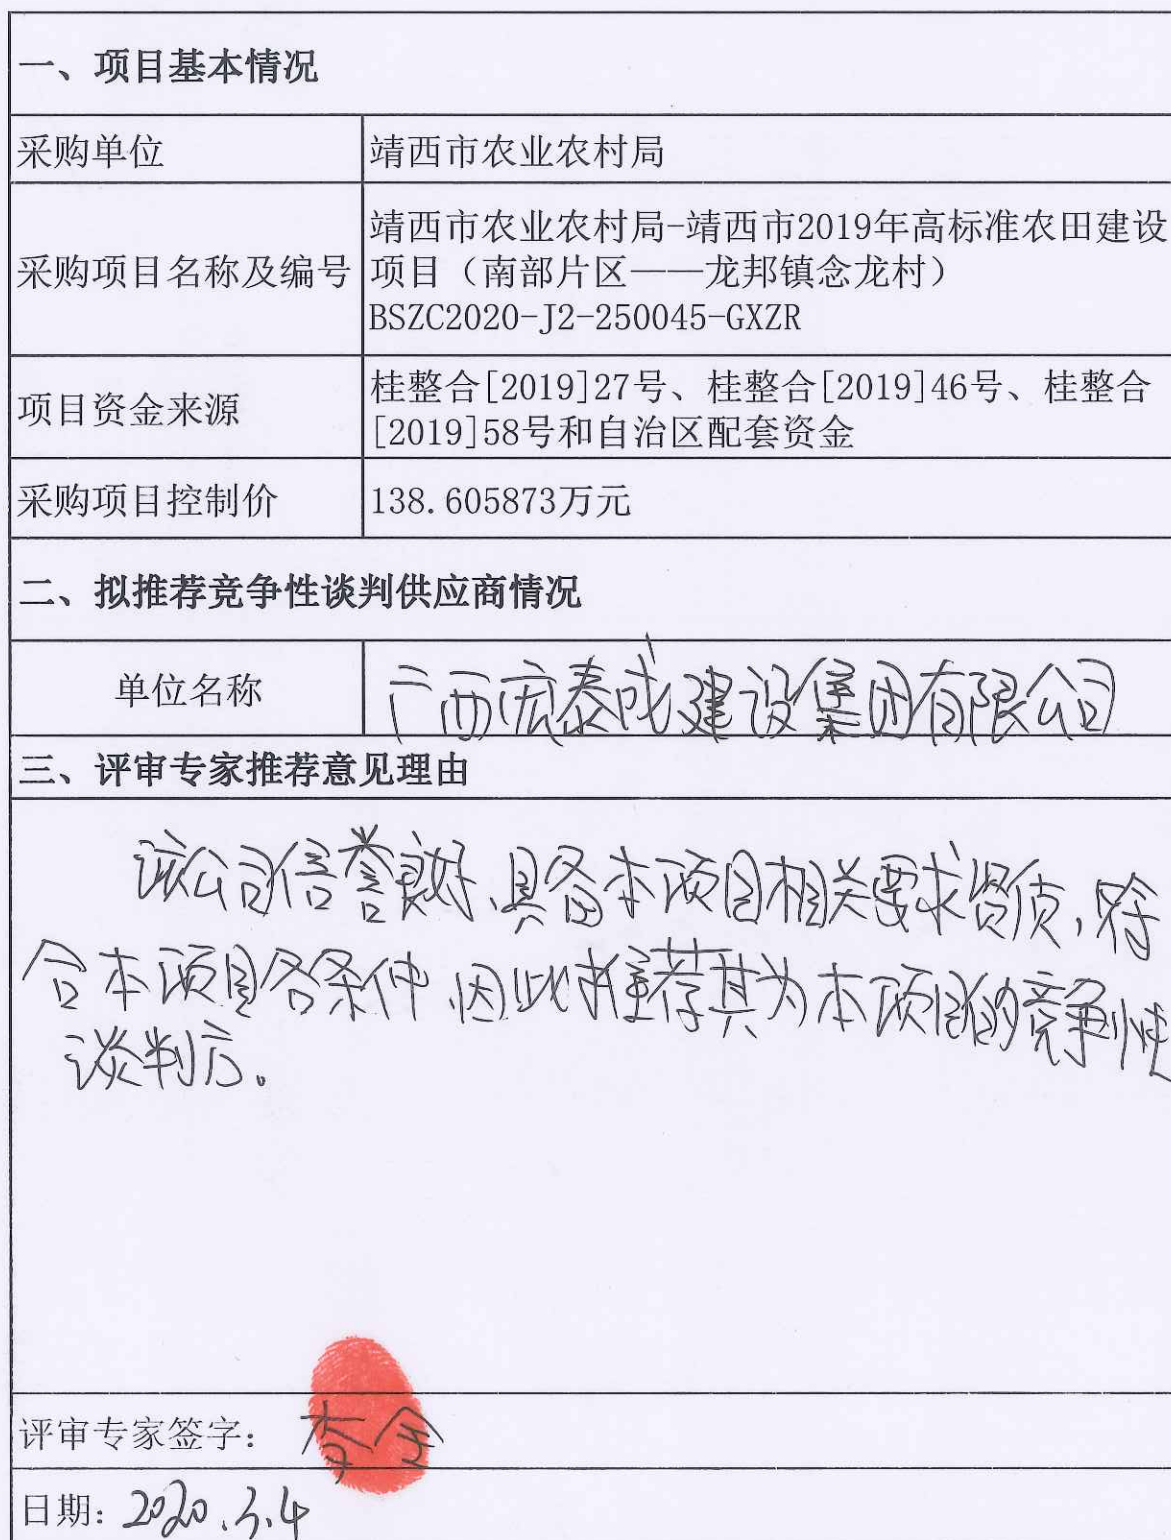 一、项目基本情况
采购单位
靖西市农业农村局
采购项目名称及编号
靖西市农业农村局-靖西市2019年高标准农田建设
项目（南部片区——龙邦镇念龙村）
BSZC2020-J2-250045-GXZR
项目资金来源
桂整合[2019]27号、桂整合[2019]46号、桂整合
[2019]58号和自治区配套资金
采购项目控制价
138.605873万元
二、拟推荐竞争性谈判供应商情况
单位名称
广西宏泰成建设集团有限公司
三、评审专家推荐意见理由
该公司信誉良好、具备本项目相关要求资质,符
合本项目各条件、因此推荐其为本项目的竞争性
谈判方。
评审专家签字：李全
日期：2020.3.4